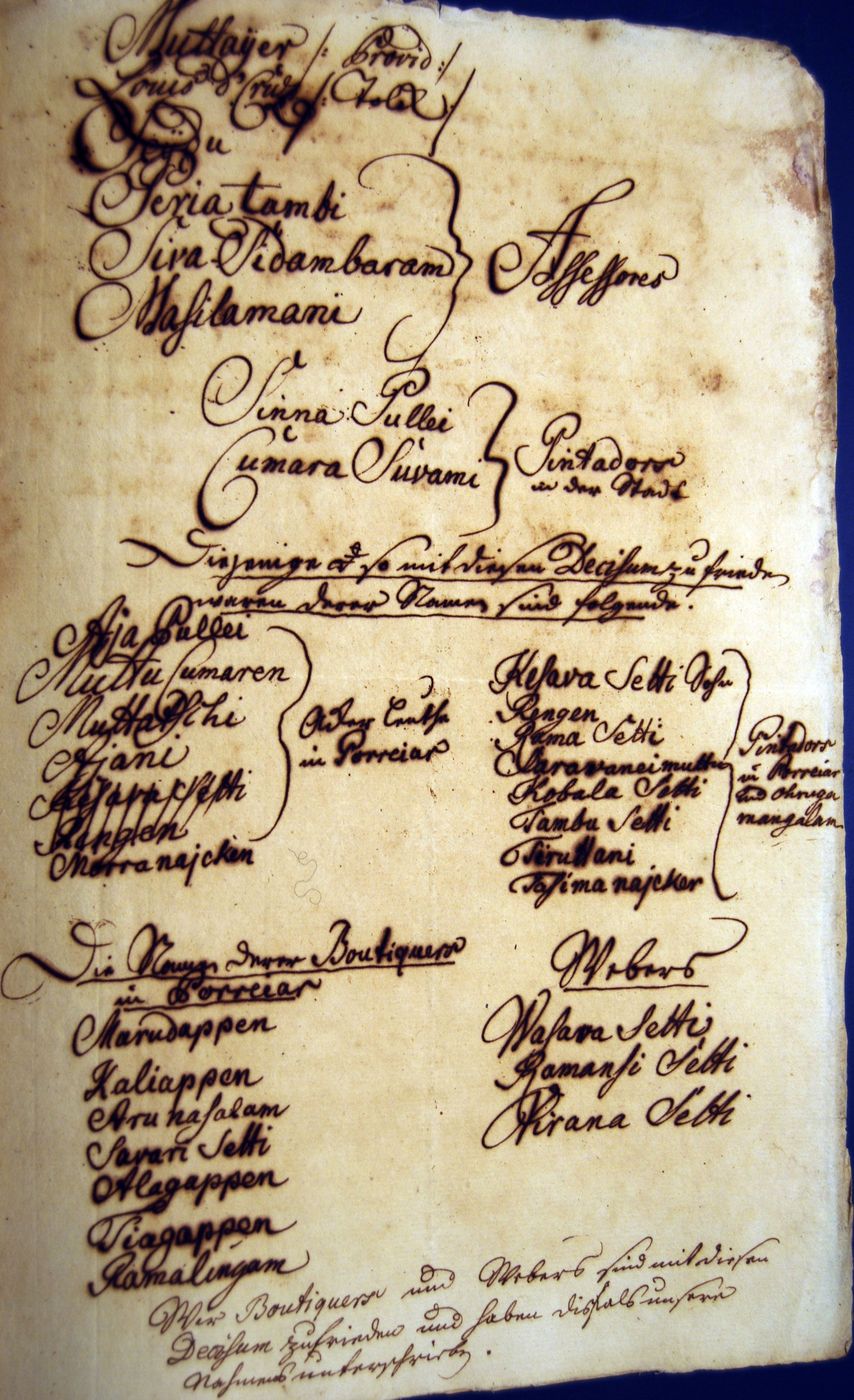 Muttayer /: Provid:/
Louis d' Cruz /: Tolk:/
Peria tambi
Siva Sidambaram
Masilamani
Assessores
Sinna Pullei
Cumara Suvami
Pintadors
in der Stadt
Diejenige so mit diesen Decisum zufrieden
waren derer Namen sind folgende.
Aja Pullei
Muttu Cumaren
Ajani
Rengen
Morra najcken
Acker leuthe
in Porreiar
Kesava Setti Sohn
Rengen
Rama Setti
Saravaneimuttu
Kobala Setti
Tambu Setti
Tiruttani
Tasima najcker
Pintadors
in Porreiar
und
mangalam
Die Namen derer Boutiquers
in Porreiar
Marudappen
Kaliappen
Arunasalam
Savari Setti
Alagappen
Tiagappen
Ramalingam
Webers
Wasava Setti
Ramansi Setti
Wirana Setti
Wir Boutiquers und Webers sind mit diesen
Decisum zufrieden und haben disfals unsere
Nahmens unterschrieben.